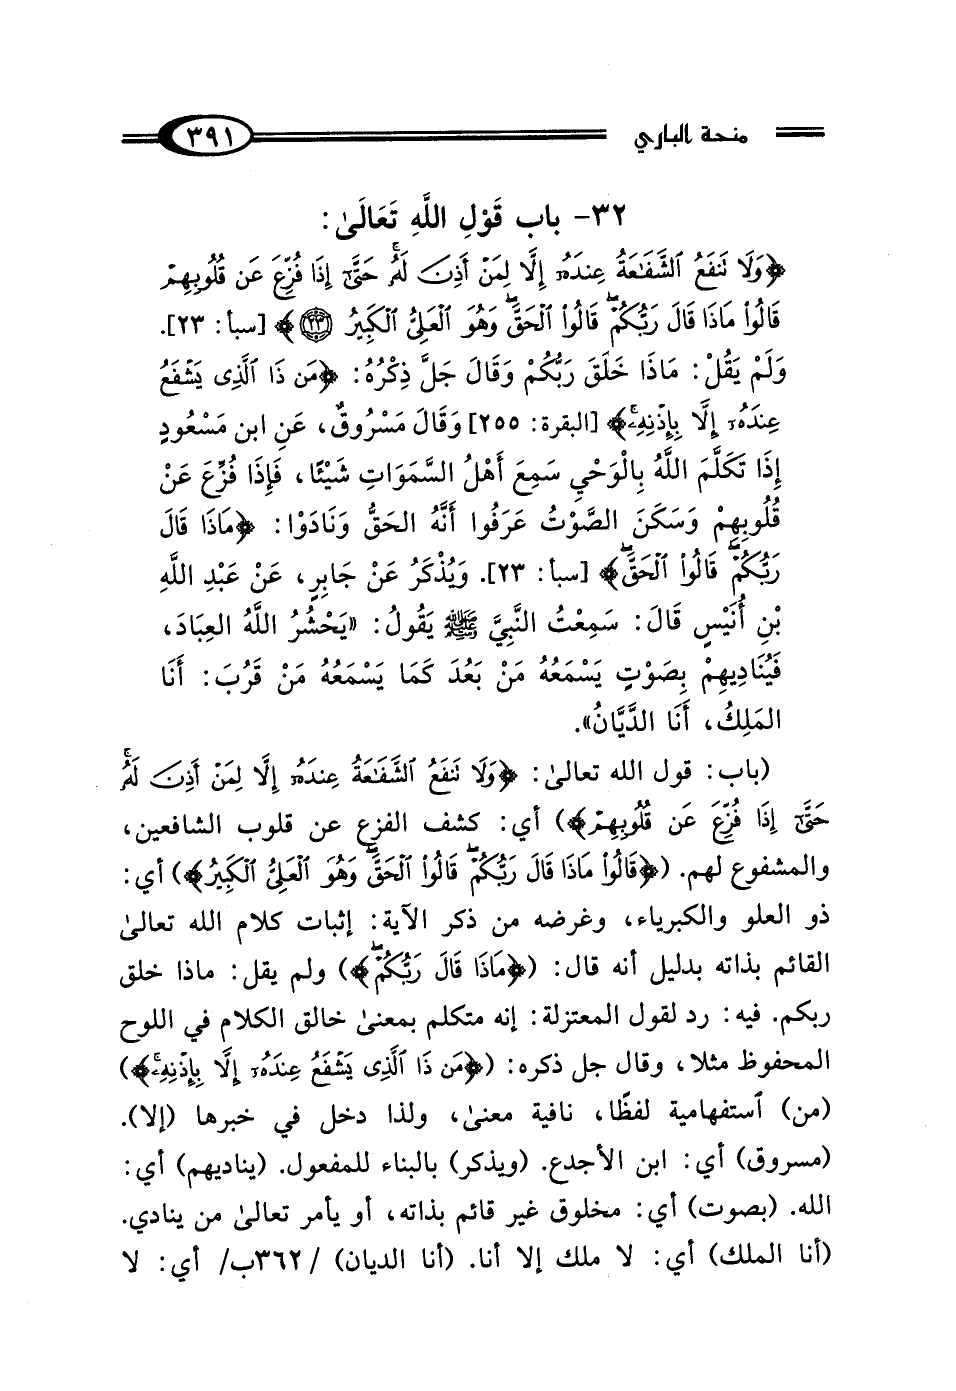 منحة الباري
٣٩١
٣٢- باب قَوْلِ اللَّهِ تَعَالَىٰ:
﴿وَلَا تَنفَعُ ٱلشَّفَٰعَةُ عِندَهُۥٓ إِلَّا لِمَنْ أَذِنَ لَهُۥۚ حَتَّىٰٓ إِذَا فُزِّعَ عَن قُلُوبِهِمْ
قَالُوا۟ مَاذَا قَالَ رَبُّكُمْۖ قَالُوا۟ ٱلْحَقَّۖ وَهُوَ ٱلْعَلِىُّ ٱلْكَبِيرُ ٢٣﴾ [سبأ: ٢٣].
وَلَمْ يَقُلْ: مَاذَا خَلَقَ رَبُّكُمْ وَقَالَ جَلَّ ذِكْرُهُ: ﴿مَن ذَا ٱلَّذِى يَشْفَعُ
عِندَهُۥٓ إِلَّا بِإِذْنِهِۦۚ﴾ [البقرة: ٢٥٥] وَقَالَ مَسْرُوقٌ، عَنِ ابن مَسْعُودٍ
إِذَا تَكَلَّمَ اللَّهُ بِالْوَحْيِ سَمِعَ أَهْلُ السَّمَوَاتِ شَيْئًا، فَإِذَا فُزِّعَ عَنْ
قُلُوبِهِمْ وَسَكَنَ الصَّوْتُ عَرَفُوا أَنَّهُ الحَقُّ وَنَادَوْا: ﴿مَاذَا قَالَ
رَبُّكُمْۖ قَالُوا۟ ٱلْحَقَّۖ﴾ [سبأ: ٢٣]. وَيُذْكَرُ عَنْ جَابِرٍ، عَنْ عَبْدِ اللَّهِ
بْنِ أُنَيْسٍ قَالَ: سَمِعْتُ النَّبِيَّ ﷺ يَقُولُ: «يَحْشُرُ اللَّهُ العِبَادَ،
فَيُنَادِيهِمْ بِصَوْتٍ يَسْمَعُهُ مَنْ بَعُدَ كَمَا يَسْمَعُهُ مَنْ قَرُبَ: أَنَا
المَلِكُ، أَنَا الدَّيَّانُ».
(باب: قول الله تعالىٰ: ﴿وَلَا تَنفَعُ ٱلشَّفَٰعَةُ عِندَهُۥٓ إِلَّا لِمَنْ أَذِنَ لَهُۥۚ
حَتَّىٰٓ إِذَا فُزِّعَ عَن قُلُوبِهِمْ﴾) أي: كشف الفزع عن قلوب الشافعين،
والمشفوع لهم. (﴿قَالُوا۟ مَاذَا قَالَ رَبُّكُمْۖ قَالُوا۟ ٱلْحَقَّۖ وَهُوَ ٱلْعَلِىُّ ٱلْكَبِيرُ﴾) أي:
ذو العلو والكبرياء، وغرضه من ذكر الآية: إثبات كلام الله تعالىٰ
القائم بذاته بدليل أنه قال: (﴿مَاذَا قَالَ رَبُّكُمْۖ﴾) ولم يقل: ماذا خلق
ربكم. فيه: رد لقول المعتزلة: إنه متكلم بمعنىٰ خالق الكلام في اللوح
المحفوظ مثلا، وقال جل ذكره: (﴿مَن ذَا ٱلَّذِى يَشْفَعُ عِندَهُۥٓ إِلَّا بِإِذْنِهِۦۚ﴾)
(من) ٱستفهامية لفظًا، نافية معنىٰ، ولذا دخل في خبرها (إلا).
(مسروق) أي: ابن الأجدع. (ويذكر) بالبناء للمفعول. (يناديهم) أي:
الله. (بصوت) أي: مخلوق غير قائم بذاته، أو يأمر تعالىٰ من ينادي.
(أنا الملك) أي: لا ملك إلا أنا. (أنا الديان) /٣٦٢ب/ أي: لا